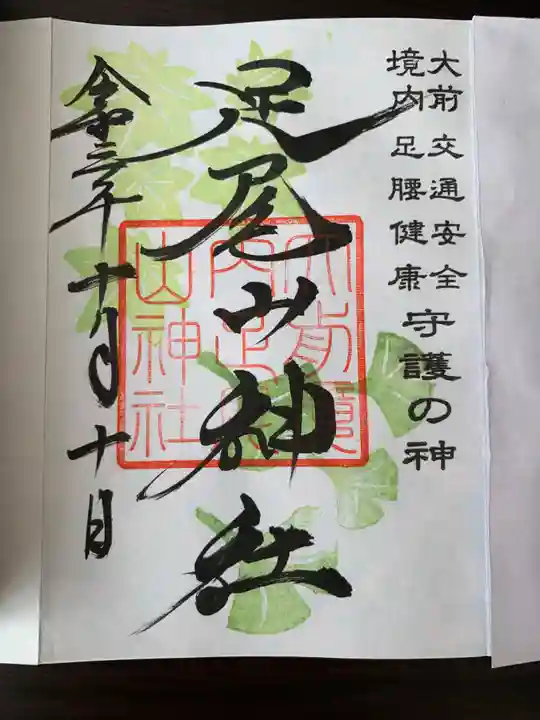 大前 交通安全
境内 足腰健康
守護の神
足尾山神社
令和三年十月十日
大前境
内足尾
山神社